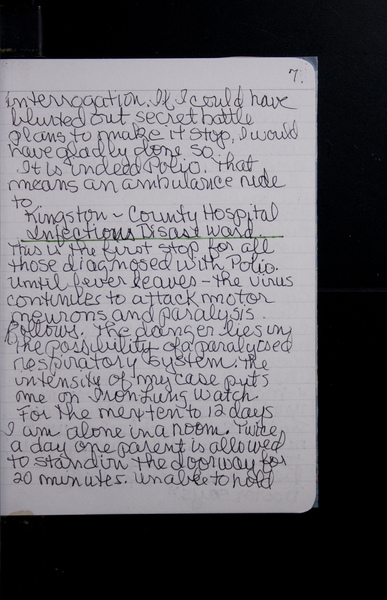 7.
interrogation. If I could have
blurted out secret battle
plans to make it stop, I would
have gladly done so.
It is indeed Polio. That
means an ambulance ride
to
Kingston - County Hospital
Infectious Disast Ward.
This is the first stop for all
those diagnosed with Polio.
Until fever leaves - the virus
continues to attack motor
neurons and paralysis
follows. The danger lies in
the possibility of a paralyzed
respiratory system. The
intensity of my case puts
me on Iron Lung Watch.
For the next ten to 12 days
I am alone in a room. Twice
a day one parent is allowed
to stand in the doorway for
20 minutes. Unable to hold